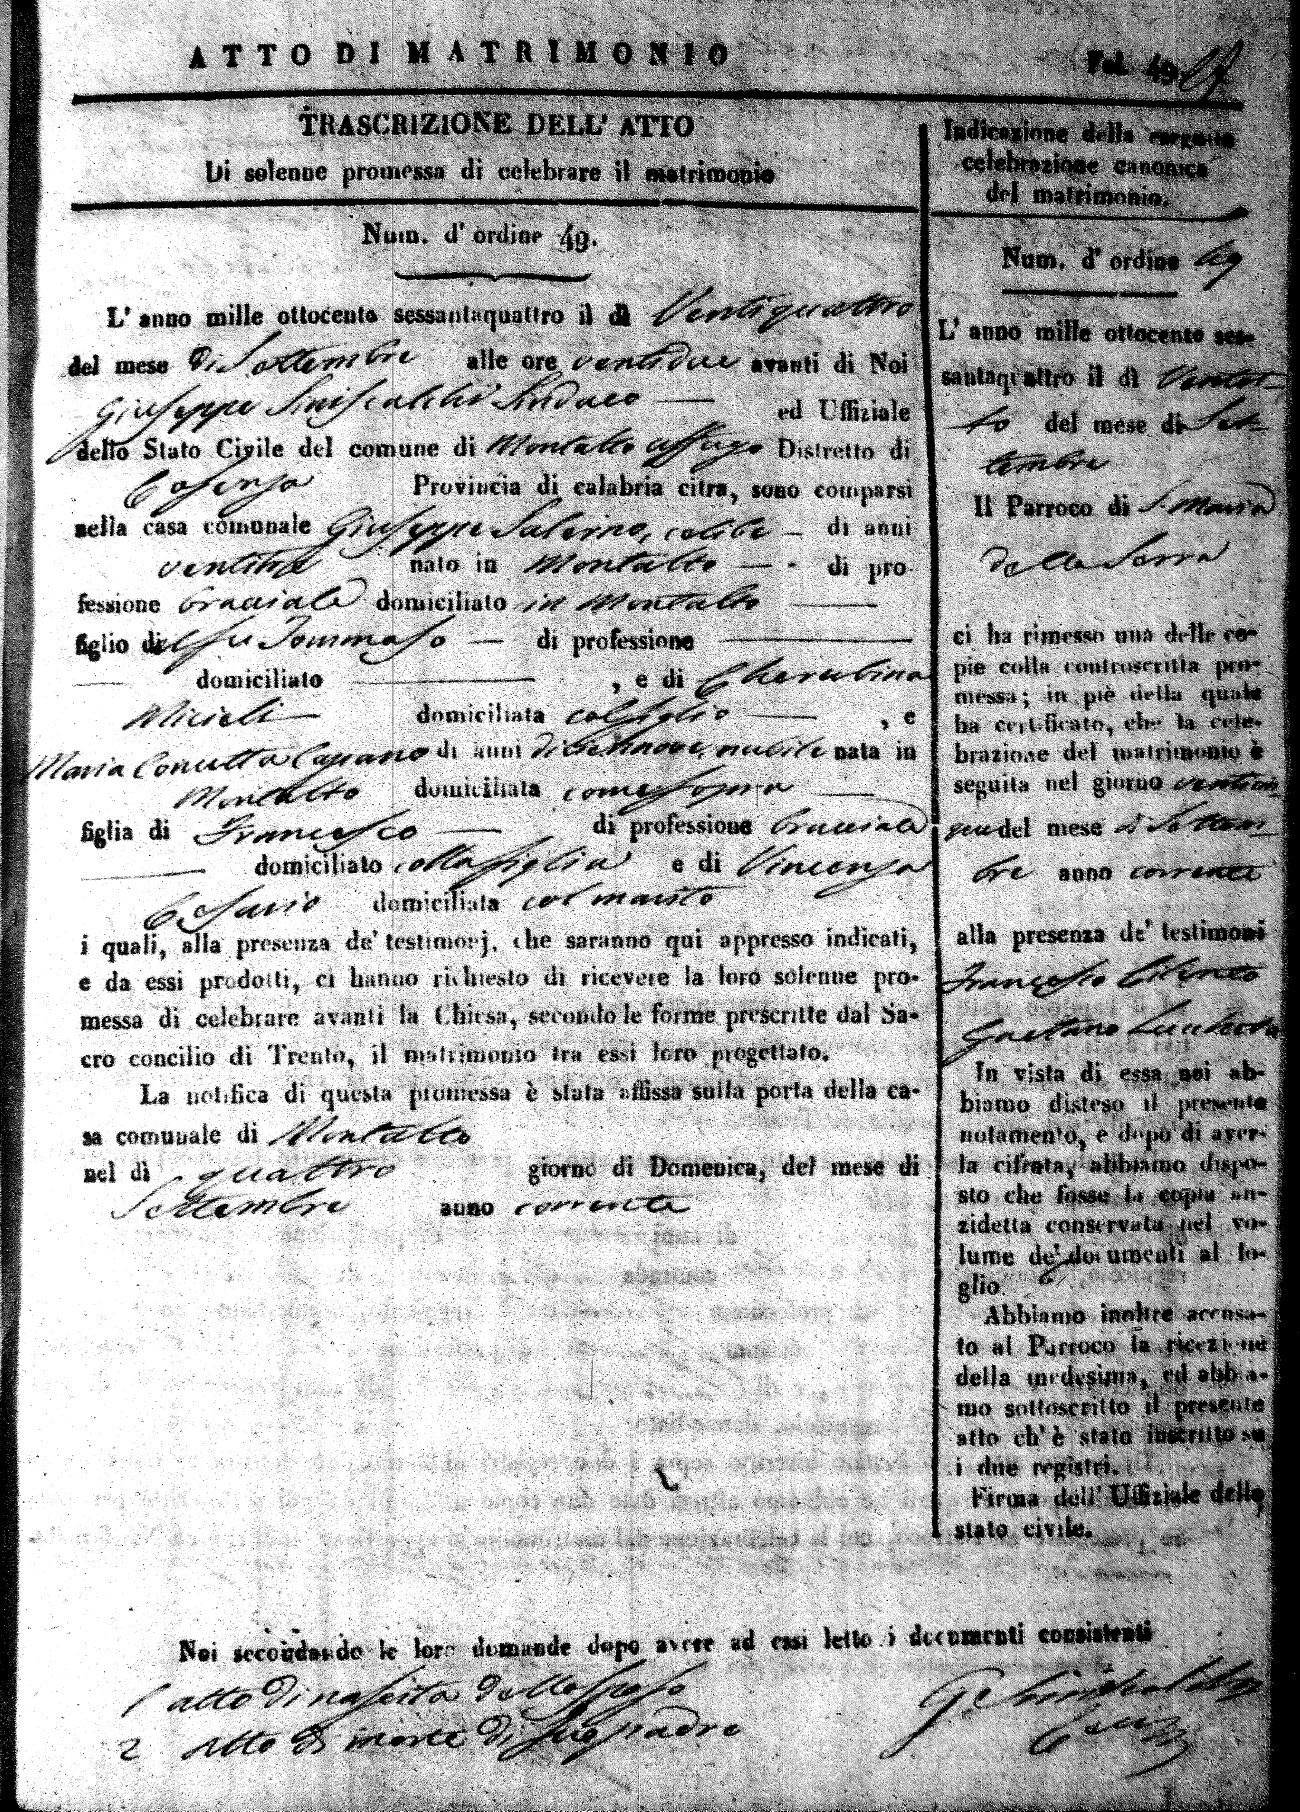 ATTO DI MATRIMONIO
Fol. 49
TRASCRIZIONE DELL' ATTO
Di solenne promessa di celebrare il matrimonio
Num. d' ordine 49.
L' anno mille ottocento sessantaquattro il dì Ventiquattro
del mese di Settembre alle ore ventidue avanti di Noi
Giuseppe Siniscalchi Sindaco ed Uffiziale
dello Stato Civile del comune di Montalto Uffugo Distretto di
Cosenza Provincia di calabria citra, sono comparsi
nella casa comunale Giuseppe Salerno, celibe di anni
ventitre nato in Montalto di pro
fessione bracciale domiciliato in Montalto
figlio di fu Tommaso di professione
domiciliato , e di Cherubina
Micieli domiciliata col figlio , e
Maria Concetta Capano di anni diciannove, nubile nata in
Montalto domiciliata come sopra
figlia di Francesco di professione bracciale
domiciliato colla figlia e di Vincenza
Cesario domiciliata col marito
i quali, alla presenza de' testimonj, che saranno qui appresso indicati,
e da essi prodotti, ci hanno richiesto di ricevere la loro solenne pro-
messa di celebrare avanti la Chiesa, secondo le forme prescritte dal Sa-
cro concilio di Trento, il matrimonio tra essi loro progettato.
La notifica di questa promessa è stata affissa sulla porta della ca-
sa comunale di Montalto
nel dì quattro giorno di Domenica, del mese di
Settembre anno corrente
Noi secondando le loro domande dopo avere ad essi letto i documenti consistenti
1 atto di nascita dello sposo
2 Atto di morte di suo padre
Indicazione della seguita
celebrazione canonica
del matrimonio.
Num. d' ordine 49
L' anno mille ottocento ses-
santaquattro il dì Ventot-
to del mese di Set-
tembre
Il Parroco di S. Maria
della Serra
ci ha rimesso una delle co-
pie colla controscritta pro-
messa; in piè della quale
ha certificato, che la cele-
brazione del matrimonio è
seguita nel giorno venticin
que del mese di Settem-
bre anno corrente
alla presenza de' testimoni
Francesco Cilento
Gaetano
In vista di essa noi ab-
biamo disteso il presente
notamento, e dopo di aver-
la cifrata, abbiamo dispo-
sto che fosse la copia an-
zidetta conservata nel vo-
lume de' documenti al fo-
glio
Abbiamo inoltre accusa-
to al Parroco la ricezione
della medesima, ed abbia-
mo sottoscritto il presente
atto ch' è stato inscritto su
i due registri.
Firma dell' Uffiziale dello
stato civile.